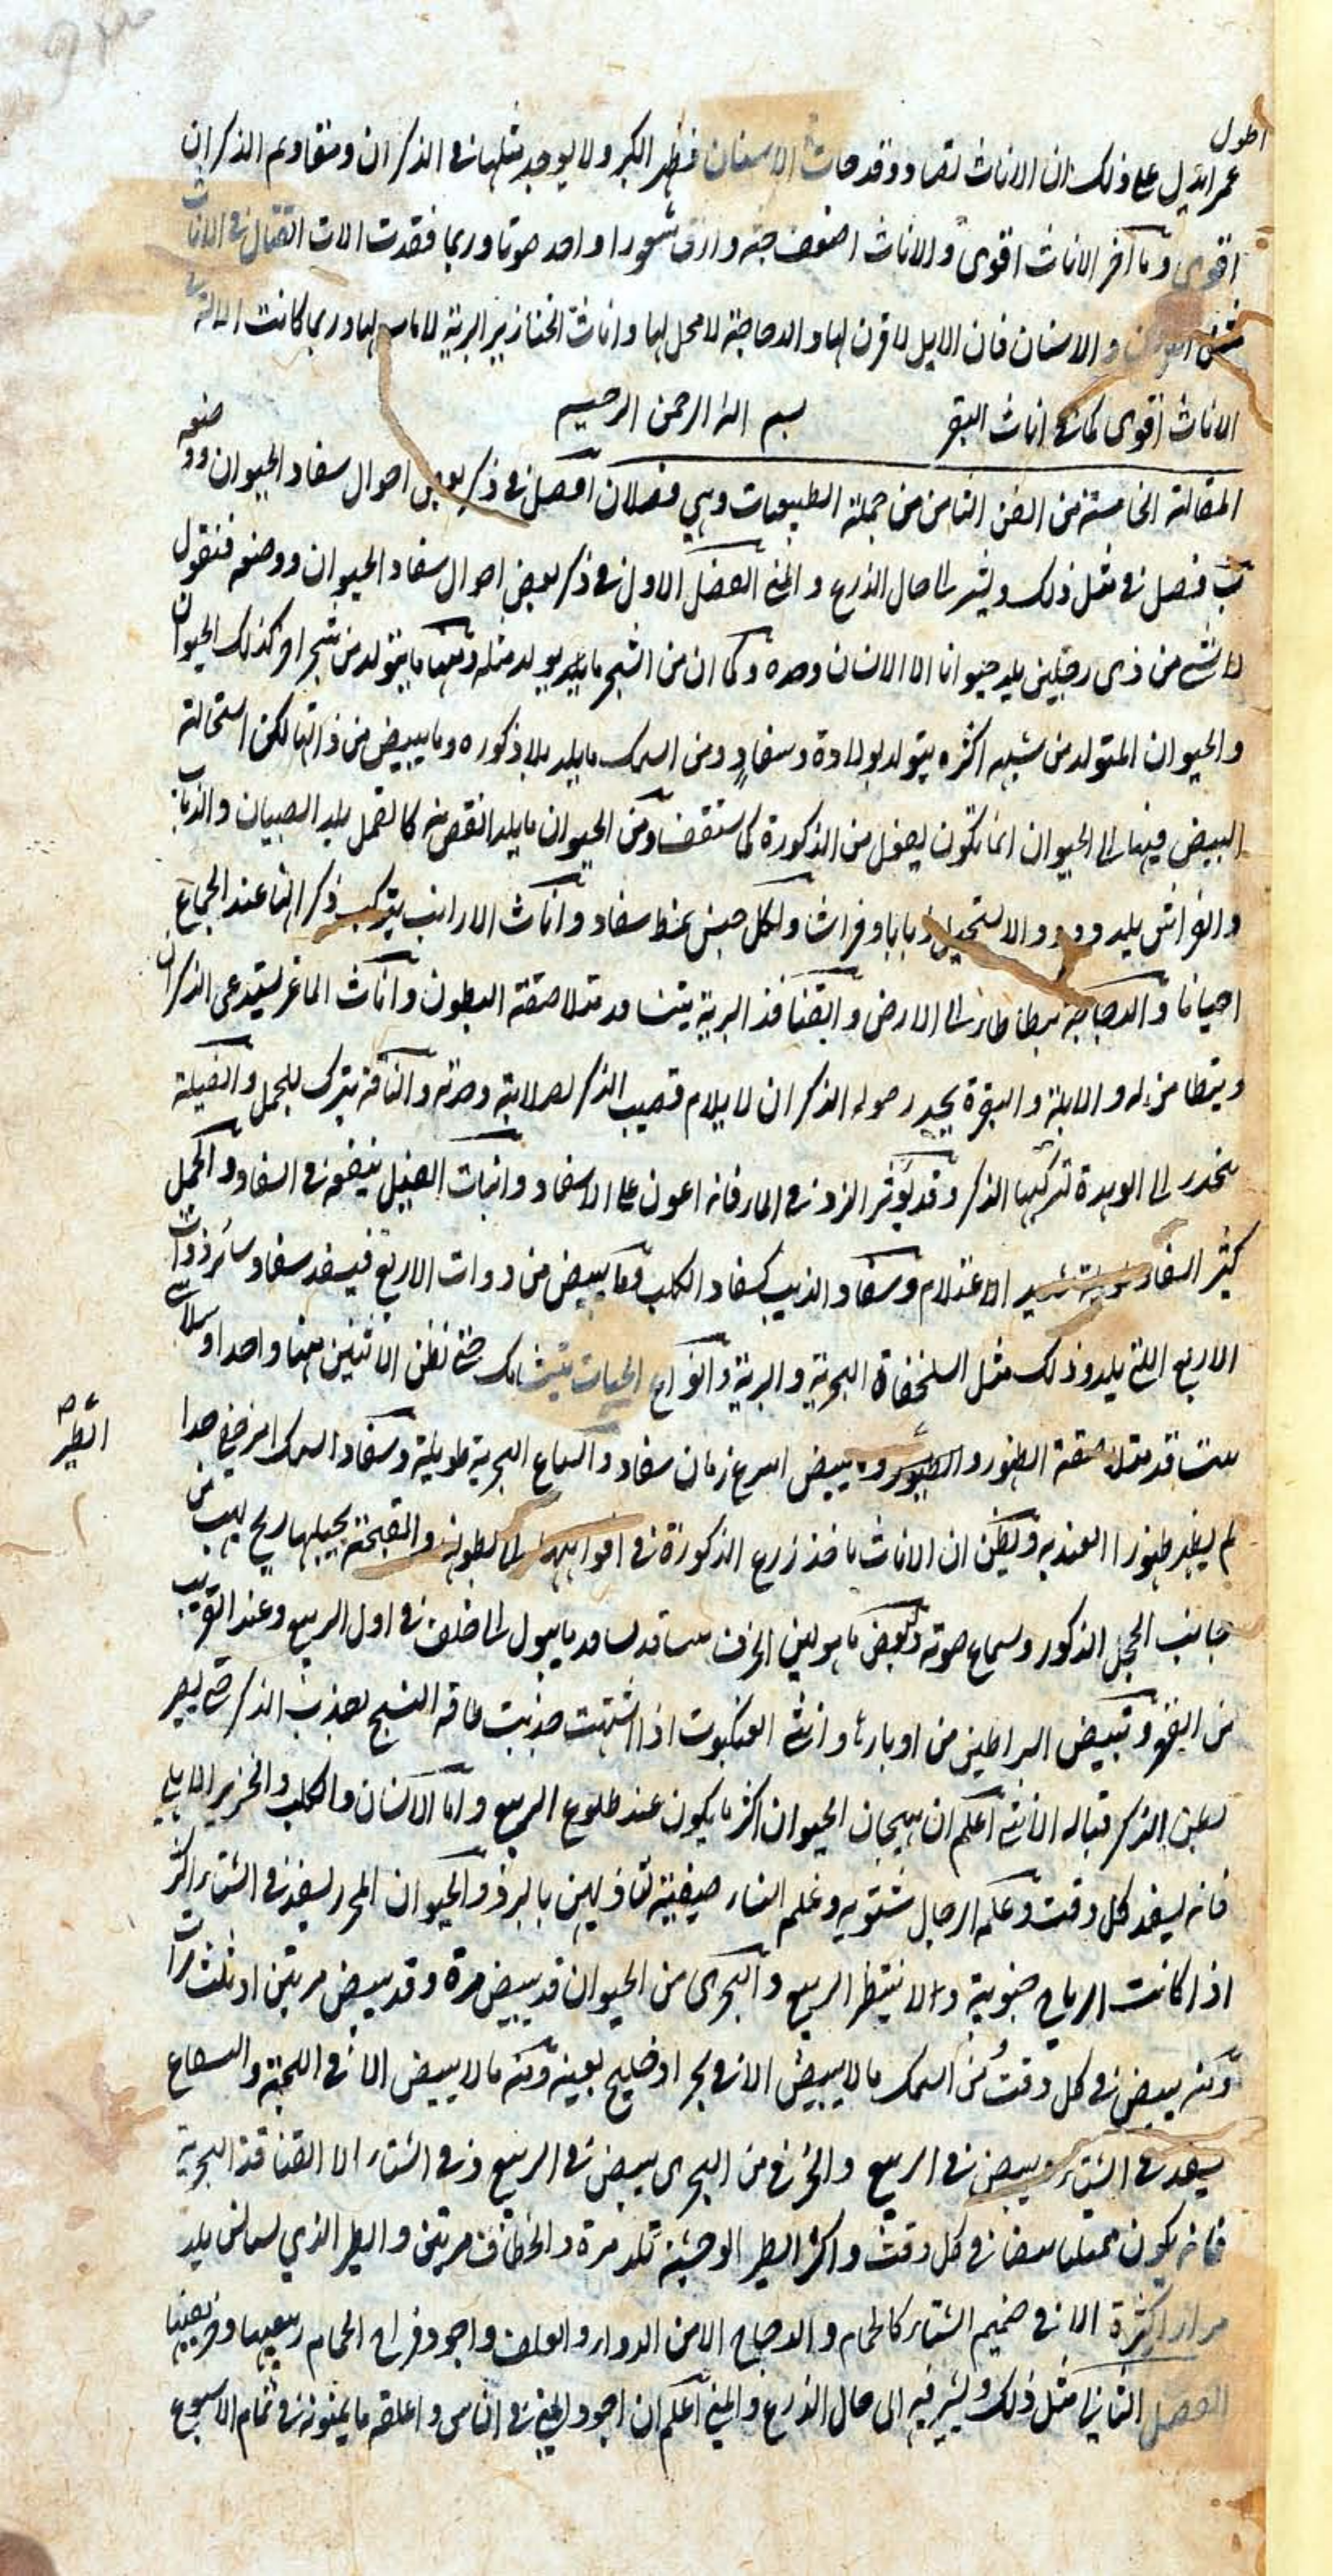 اطول
عمرا تدل على ذلك ان الاناث تصاد وقد الاسنان فظهر الكبر ولا يوجد مثلها في الذكران ومقاديم الذكران
اقوى وما آخر الاناث اقوى والاناث اضعف جثة وارق شعورا واحد صوتا وربما فقدت الات القتال في الاناث
مثل القرن والاسنان فان الايل لا قرن لها والدجاجة لا مخلب لها واناث الخنازير البرية لا ناب لها وربما كانت الالة في
الاناث اقوى كما في اناث البقر بسم الله الرحمن الرحيم
المقالة الخامسة من الفن الثامن من جملة الطبيعيات وهي فصلان آ فصل في ذكر بعض احوال سفاد الحيوان ووضعه
ب فصل في مثل ذلك ويشير الى حال الزرع والمني الفصل الاول في ذكر بعض احوال سفاد الحيوان ووضعه فنقول
لا شيء من ذي رجلين يلد حيوانا الا الانسان وحده وكما ان من الشجر ما يولد مثله ومنها ما يتولد من شجر آخر كذلك الحيوان
والحيوان المتولد من شبهه اكثره يتولد بولادة وسفاد ومن السمك ما يلد بلا ذكورة وما يبيض من ذاتها لكن استحالة
البيض فيها الى الحيوان انما تكون بفعل من الذكورة كما ستقف ومن الحيوان ما يلد انقص منه كالقمل يلد الصيبان والذباب
والفراش يلد دودا لا يستحيل ذبابا وفراشا ولكل جنس نمط سفاد واناث الارانب يتركب ذكرانها عند الجماع
احيانا والدجاجة تطأطأ الى الارض والقنافذ البرية يتسافد متلاصقة البطون واناث الماعز يستدعي الذكران
ويتطامن له والايلة والبقرة بحد حوله الذكران لا يلايم قضيب الذكر لصلابته وحدته والناقة تبرك للجمل والفيلة
تنحدر الى الوهدة لتركبها الذكر وقد يؤثر النزو في الماء فانه اعون على السفاد وانياب الفيل ينفعه في السفاد والجمل
كثير السفاد شديد الاغتلام وسفاد الذيب كسفاد الكلب وما يبيض من دوات الاربع فيسفد سفاد سائر ذوات
الاربع التي يلد وذلك مثل السلحفاة البحرية والبرية وانواع الحيات يتشابك حتى تظن الاثنين منها واحدا
يتسافد متلاصقة الظهور والطيور وما يبيض اسرع زمان سفاد والسباع البحرية طويلة وسفاد السمك امر خفي جدا
الطير
لم يظهر ظهورا العند به ويظن ان الاناث ياخذ زرع الذكورة في افواهها الى بطونها والقبجة يحبلها ريح يهب من
جانب الحجل الذكور وسماع صوته وبعض ما هو لين الخزف يتسافد بسافد ما يبول الى خلف في اول الربيع وعند القريب
من الفقر وتبيض البراطين من اوبارها وانثى العنكبوت اذا اشتهت جذبت طاقة النسج بعذب الذكر حتى يصير
بطن الذكر قبالة الانثى اعلم ان هيجان الحيوان اكثر ما يكون عند طلوع الربيع واما الانسان والكلب والخنزير الاهلي
فانه يسفد كل وقت وغلمة الرجال شتوية وغلم النساء صيفية لتاذيهن بالبرد والحيوان البحري يسفد في الشتاء اكثر
اذا كانت الرياح جنوبية والا ينتظر الربيع والبحري من الحيوان قد يبيض مرة وقد يبيض مرتين او ثلث مرات
ومنه يبيض في كل وقت ومن السمك ما لا يبيض الا في بحر او خليج بعينه ومنه ما لا يبيض الا في اللجة والسباع
يسفد في الشتاء ويبيض في الربيع والخزفي من البحري يبيض في الربيع وفي الشتاء الا القنافذ البحرية
فانه يكون ممتليا بيضا في كل وقت واكثر الطير الوحشية تلد مرة والخطاف مرتين والطير الذي يستانس يلد
مرارا كثيرة الا في صميم الشتاء كالحمام والدجاج الا من الدوار والعلف واجود فراخ الحمام ربيعيها وخريفيها
الفصل الثاني في مثل ذلك ويشير فيه الى حال الزرع والمني اعلم ان اجود المني في الناس واعلقه ما يمنونه في تمام الاسبوع